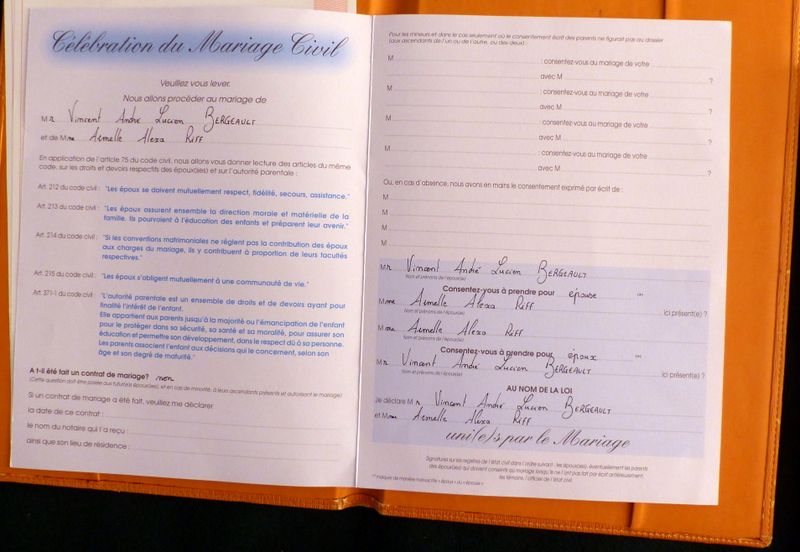 Célébration du Mariage Civil
Veuillez vous lever.
Nous allons procéder au mariage de
Mr Vincent André Lucien BERGEAULT
et de Mme Armelle Alexa RIFF
En application de l'article 75 du code civil, nous allons vous donner lecture des articles du même
code, sur les droits et devoirs respectifs des époux(ses) et sur l'autorité parentale :
Art. 212 du code civil : "Les époux se doivent mutuellement respect, fidélité, secours, assistance."
Art. 213 du code civil : "Les époux assurent ensemble la direction morale et matérielle de la
famille. Ils pourvoient à l'éducation des enfants et préparent leur avenir."
Art. 214 du code civil : "Si les conventions matrimoniales ne règlent pas la contribution des époux
aux charges du mariage, ils y contribuent à proportion de leurs facultés
respectives."
Art. 215 du code civil : "Les époux s'obligent mutuellement à une communauté de vie."
Art. 371-1 du code civil : "L'autorité parentale est un ensemble de droits et de devoirs ayant pour
finalité l'intérêt de l'enfant.
Elle appartient aux parents jusqu'à la majorité ou l'émancipation de l'enfant
pour le protéger dans sa sécurité, sa santé et sa moralité, pour assurer son
éducation et permettre son développement, dans le respect dû à sa personne.
Les parents associent l'enfant aux décisions qui le concernent, selon son
âge et son degré de maturité."
A t-il été fait un contrat de mariage? non
(Cette question doit être posée aux futur(e)s époux(ses), et en cas de minorité, à leurs ascendants présents et autorisant le mariage)
Si un contrat de mariage a été fait, veuillez me déclarer
la date de ce contrat :
le nom du notaire qui l'a reçu :
ainsi que son lieu de résidence :
Pour les mineurs et dans le cas seulement où le consentement écrit des parents ne figurait pas au dossier
(aux ascendants de l'un ou de l'autre, ou des deux) :
M : consentez-vous au mariage de votre
avec M ?
M : consentez-vous au mariage de votre
avec M ?
M : consentez-vous au mariage de votre
avec M ?
M : consentez-vous au mariage de votre
avec M ?
Ou, en cas d'absence, nous avons en mains le consentement exprimé par écrit de :
M
M
M
M
Mr Vincent André Lucien BERGEAULT
Nom et prénoms de l'époux(se)
Consentez-vous à prendre pour épouse (**)
Mme Armelle Alexa RIFF ici présent(e) ?
Nom et prénoms de l'époux(se)
Mme Armelle Alexa RIFF
Nom et prénoms de l'époux(se)
Consentez-vous à prendre pour époux (**)
Mr Vincent André Lucien BERGEAULT ici présent(e) ?
Nom et prénoms de l'époux(se)
AU NOM DE LA LOI
Je déclare Mr Vincent André Lucien BERGEAULT
et Mme Armelle Alexa RIFF
uni(e)s par le Mariage
Signatures sur les registres de l'état civil dans l'ordre suivant : les époux(ses), éventuellement les parents
des époux(ses) qui doivent consentir au mariage lorsqu'ils ne l'ont pas fait par écrit antérieurement,
les témoins, l'officier de l'état civil.
(**) Indiquer de manière manuscrite « Époux » ou « Épouse »